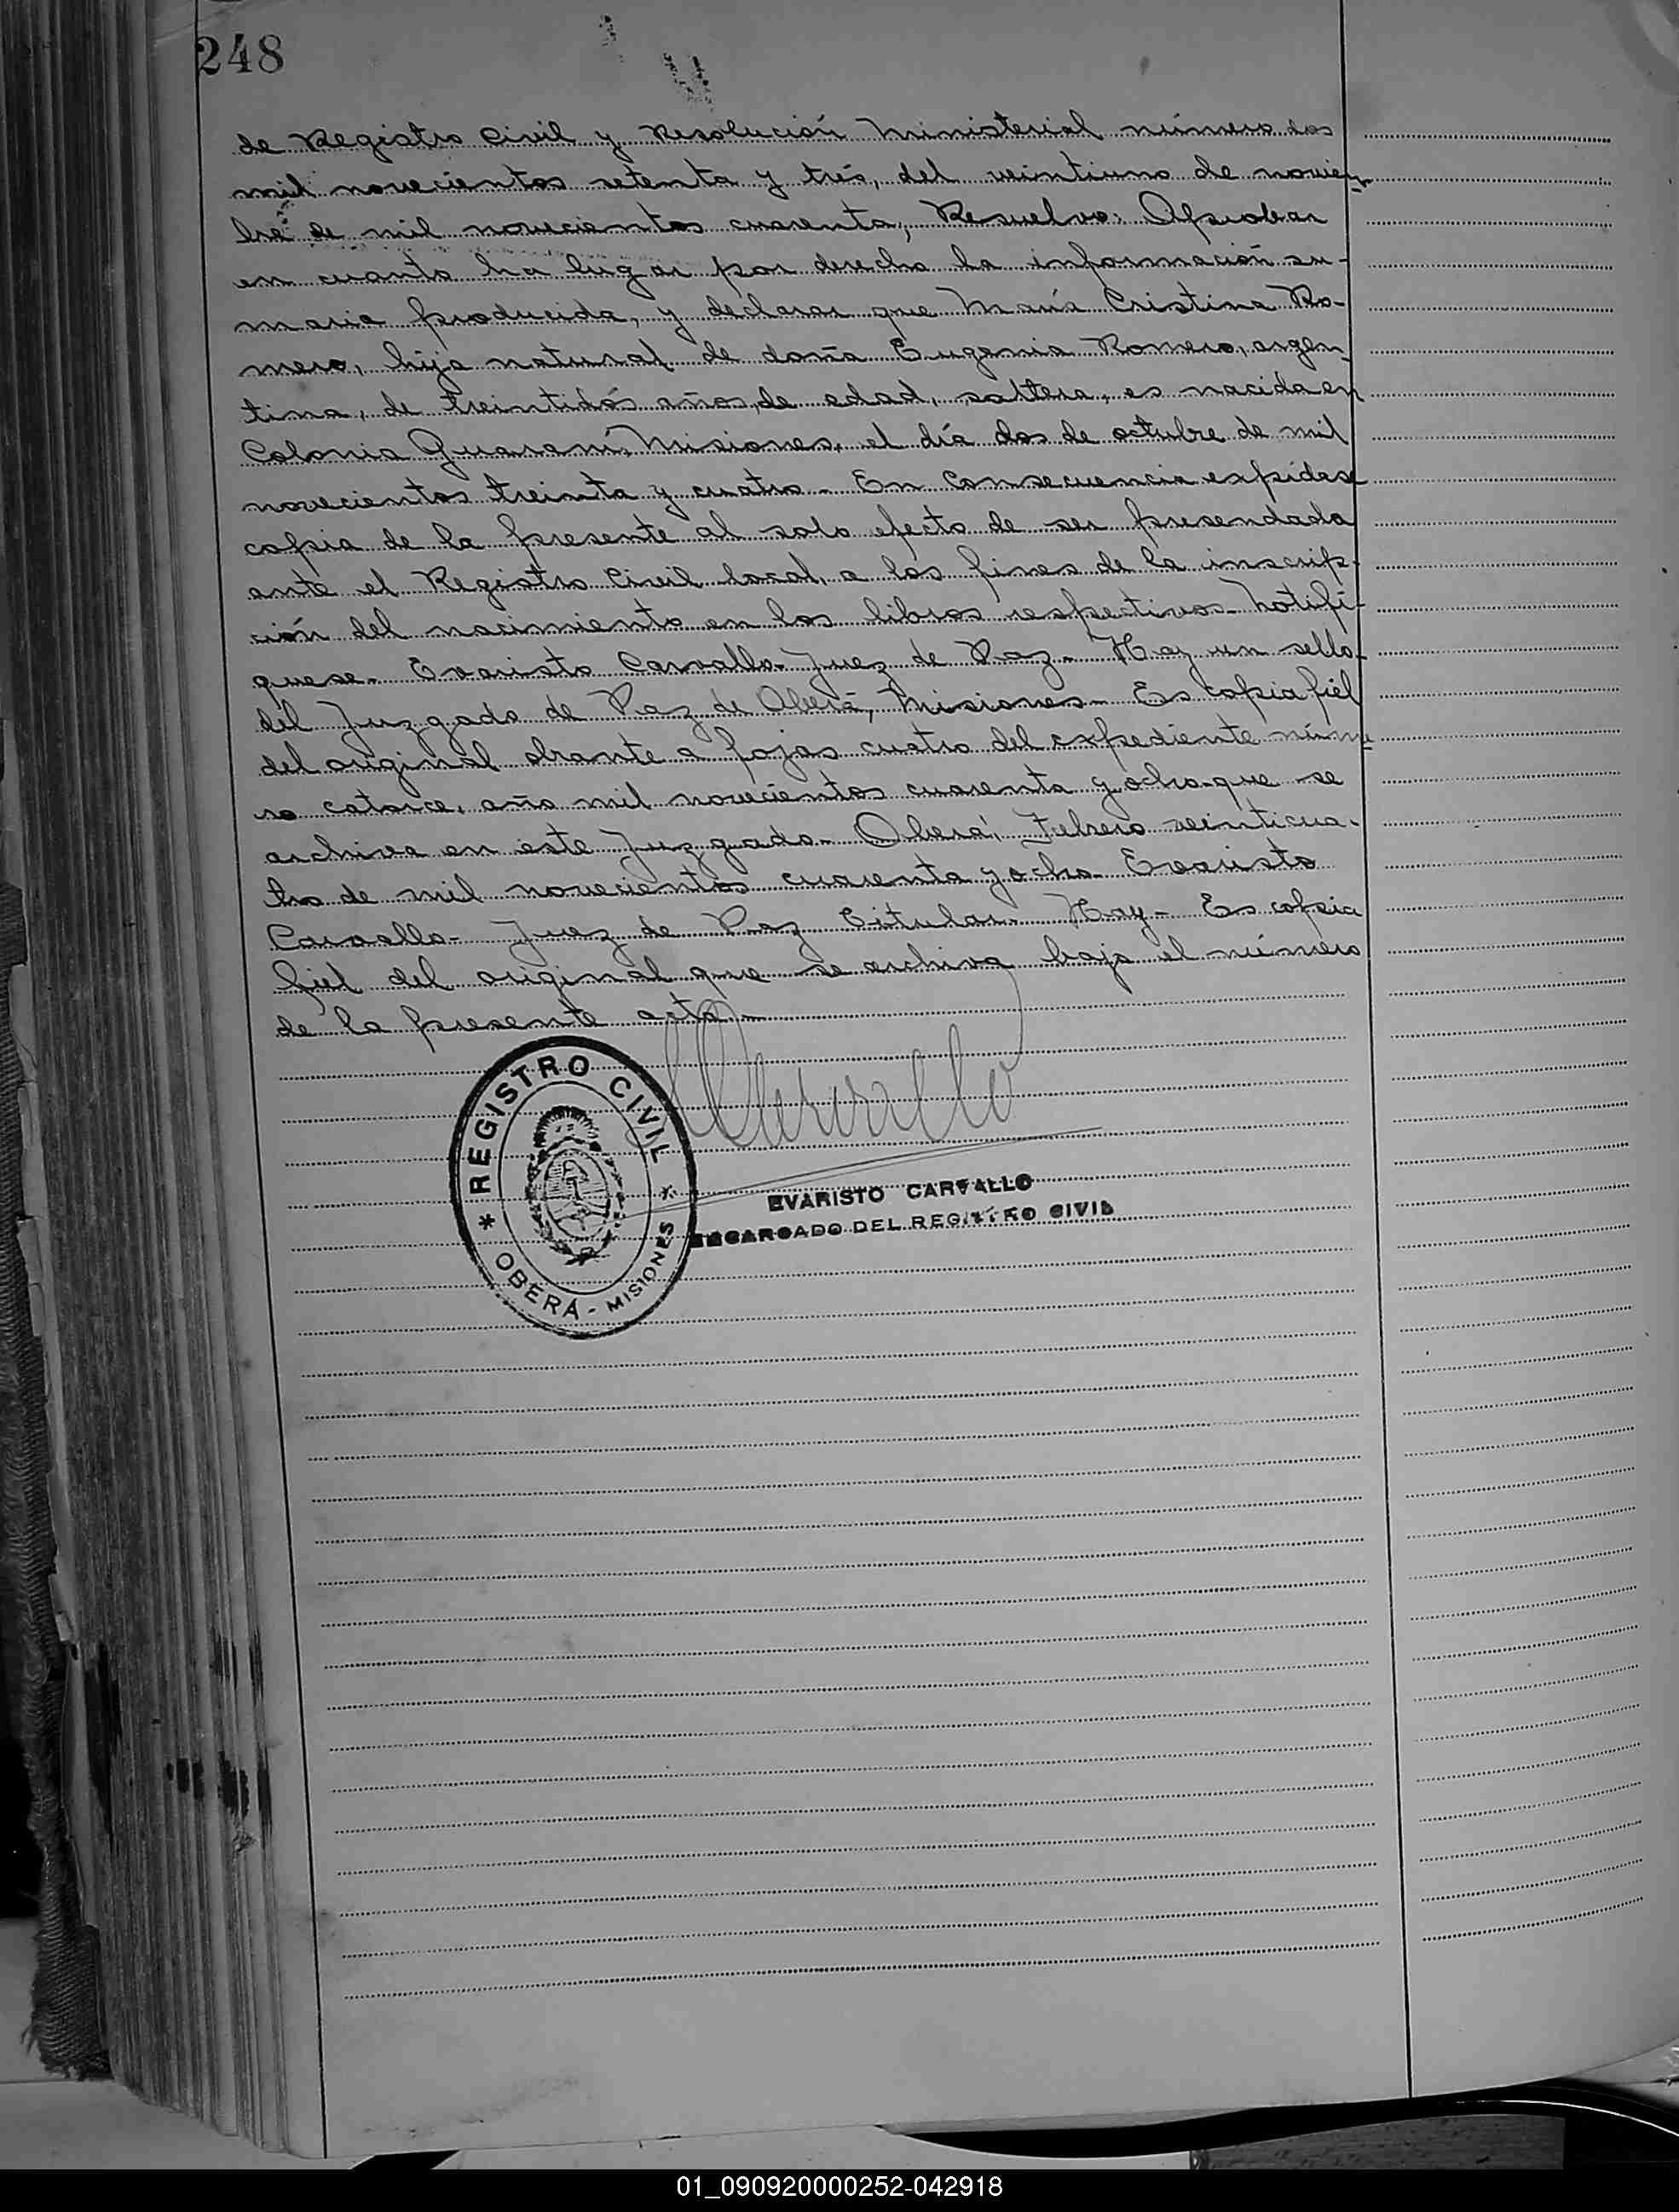 248
de Registro Civil y Resolución Ministerial número dos
mil novecientos setenta y trés, del veintiuno de noviem
bre de mil novecientos cuarenta, Resuelvo: Aprobar
en cuanto ha lugar por derecho la información su-
maria producida, y declarar que María Cristina Ro-
mero, hija natural de doña Eugenia Romero, argen
tina, de treintidós años de edad, soltera, es nacida en
Colonia Guaraní, Misiones, el día dos de octubre de mil
novecientos treinta y cuatro - En Consecuencia expídase
copia de la presente al solo efecto de ser presendada
ante el Registro Civil local, a los fines de la inscrip-
ción del nacimiento en los libros respectivos - Notifí-
quese - Evaristo Carvallo - Juez de Paz - Hay un sello
del Juzgado de Paz de Oberá, Misiones - Es copia fiel
del original obrante a fojas cuatro del expediente núme
ro catorce, año mil novecientos cuarenta y ocho - que se
archiva en este Juzgado - Oberá, Febrero veinticua-
tro de mil novecientos cuarenta y ocho - Evaristo
Carvallo - Juez de Paz Titular - Hay - Es copia
fiel del original que se archiva bajo el número
de la presente acta -
Carvallo
REGISTRO CIVIL
OBERÁ - MISIONES
EVARISTO CARVALLO
ENCARGADO DEL REGISTRO CIVIL
01_090920000252-042918